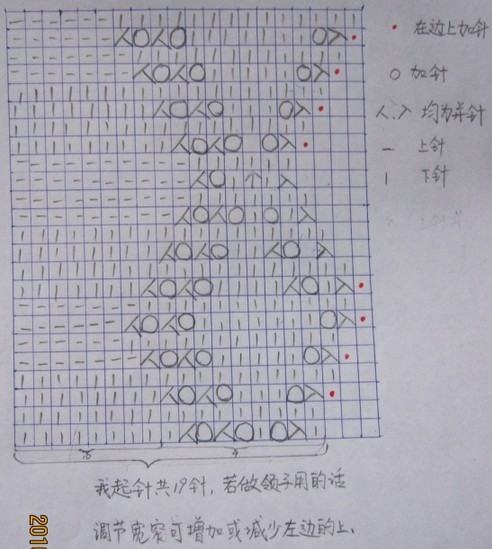 • 在边上加针
○ 加针
人.入 均为并针
一 上针
| 下针
我起针共19针，若做领子用的话
调节宽窄可增加或减少左边的上、